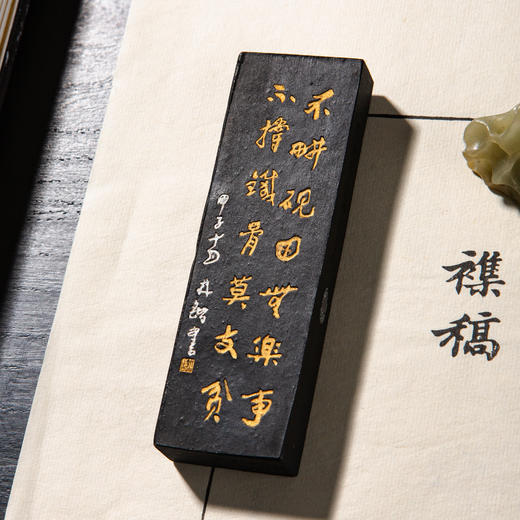 不畊硯田無樂事
不撐鐵骨莫支貧
甲子十月 林鍇書
襍稿